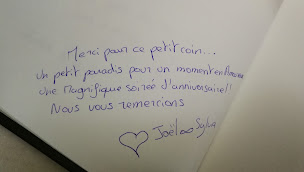 Merci pour ce petit coin...
Un petit paradis pour un moment en Amoureux
Une magnifique soirée d'anniversaire!!
Nous vous remercions
Joël Sylvie